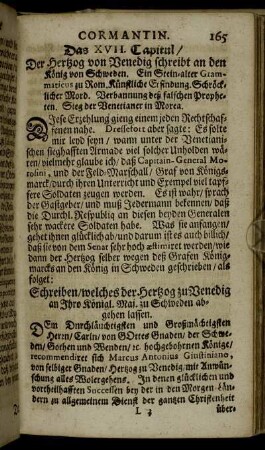 CORMANTIN. 165
Das XVII. Capitul/
Der Hertzog von Venedig schreibt an den
König von Schweden. Ein Stein-alter Gram-
maticus zu Rom. Künstliche Erfindung. Schröck-
licher Mord. Verbannung deß falschen Prophe-
ten. Sieg der Venetianer in Morea.
Diese Erzehlung gieng einem jeden Rechtschaf-
fenen nahe. Dressefort aber sagte: Es solte
mir leyd seyn / wann unter der Venetiani-
schen sieghafften Armade viel solcher Unholden wä-
ren/ vielmehr glaube ich/ daß Capitain-General Mo-
rosini, und der Feld-Marschall / Graf von Königs-
marck/ durch ihren Unterricht und Exempel viel tapf-
fere Soldaten zeugen werden. Es ist wahr/ sprach
der Gastgeber/ und muß Jedermann bekennen/ daß
die Durchl. Respubliq an diesen beyden Generalen
sehr wackere Soldaten habe. Was sie anfangen/
gehet ihnen glücklich ab/ und darum ist es auch billich/
daß sie von dem Senat sehr hoch æstimiret werden/ wie
dann der Hertzog selber wegen deß Grafen Königs-
marcks an den König in Schweden geschrieben/ als
folget:
Schreiben/ welches der Hertzog zu Venedig
an Ihro Königl. Maj. zu Schweden ab-
gehen lassen.
Dem Durchläuchtigsten und Großmächtigsten
Herrn/ Carln/ von GOttes Gnaden/ der Schwe-
den/ Gothen und Wenden/ ꝛc. hochgebohrnen Könige/
recommendiret sich Marcus Antonius Giustiniano,
von selbiger Gnaden/ Hertzog zu Venedig/ mit Anwün-
schung alles Wolergehens. In denen glücklichen und
vortheilhafften Successen bey der in den Morgen-Län-
dern zu allgemeinem Dienst der gantzen Christenheit
L 3 über-